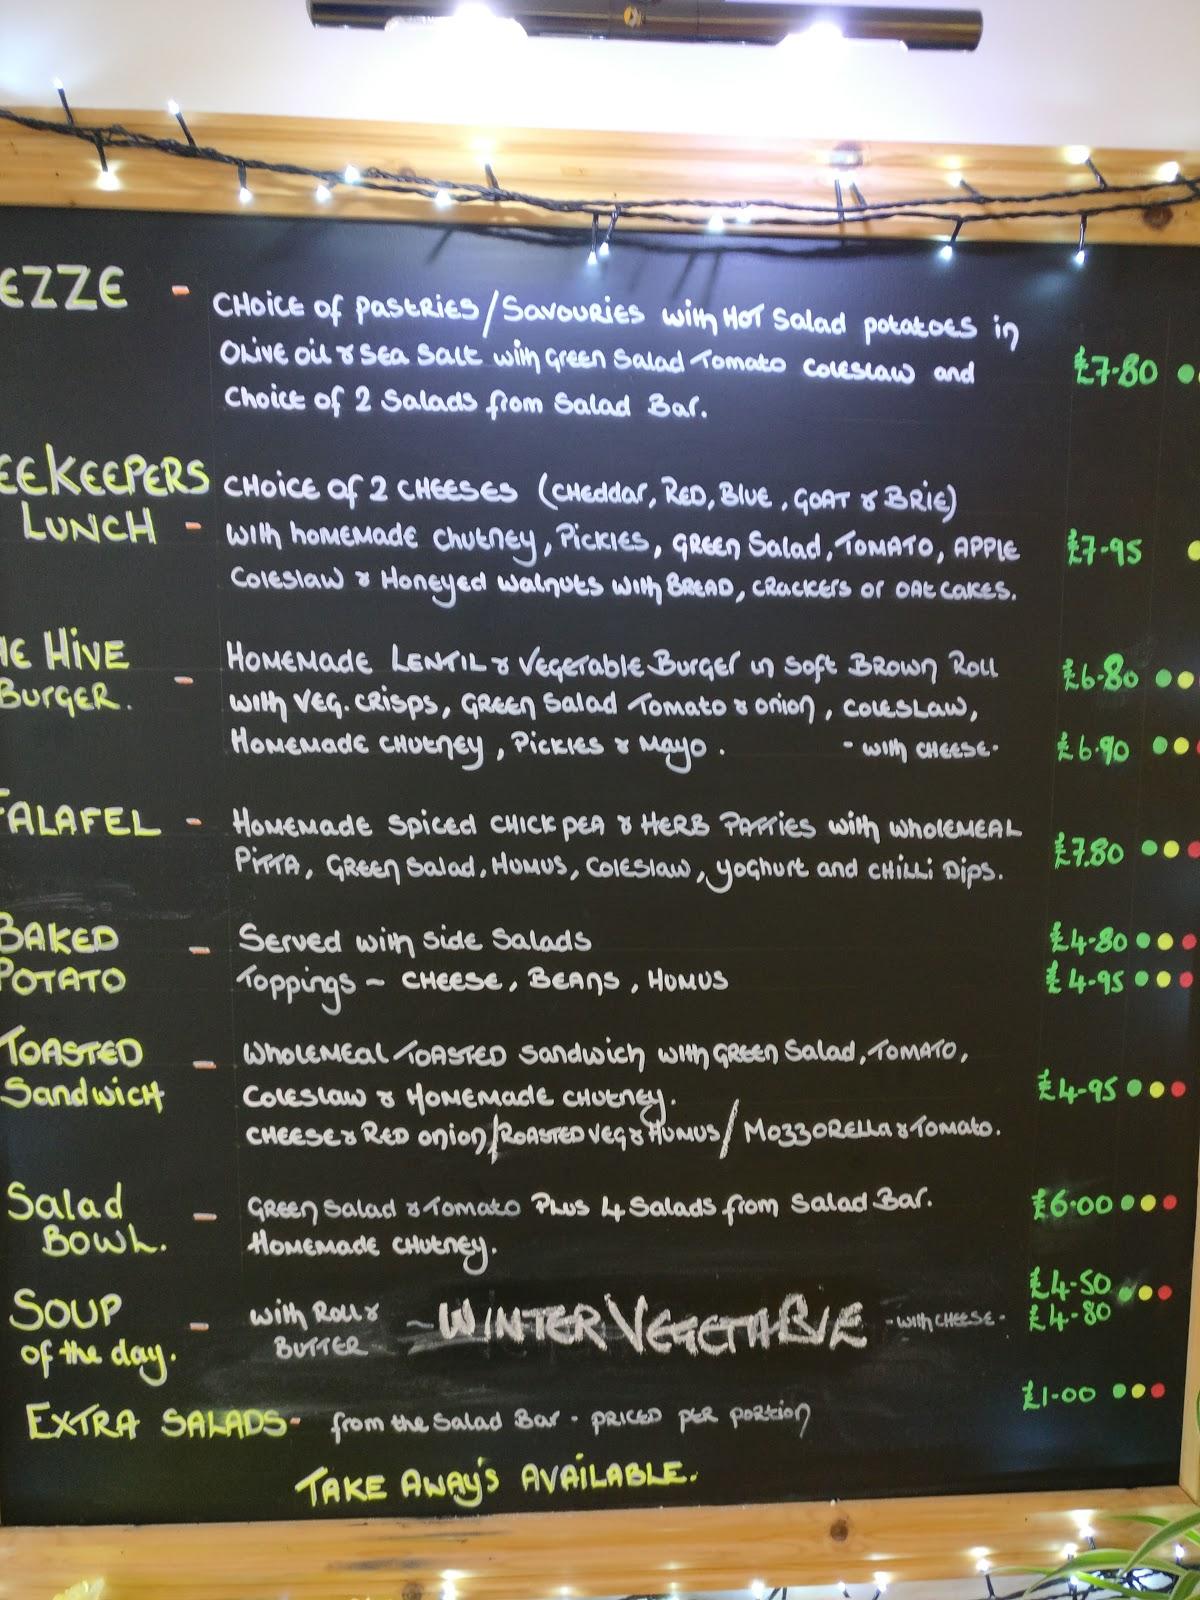 EZZE - CHOICE of PASTRIES/SAVOURIES with HOT Salad potatoes in
Olive oil & Sea Salt with Green Salad Tomato Coleslaw and
Choice of 2 Salads from Salad Bar.
£7.80
EEKEEPERS LUNCH -
CHOICE of 2 CHEESES (CHeddar, RED, Blue, GOAT & BRIE)
With homemade chutney, Pickles, GREEN Salad, TOMATO, APPLE
Coleslaw & Honeyed walnuts with BREAD, CRACKERS or OATCAKES.
£7.95
HE HIVE BURGER. -
HOMEMADE LENTIL & VEGETABLE Burger in Soft BROWN Roll
With VEG. CRISPS, GREEN Salad Tomato & onion, COLESLAW,
HOMEMADE CHUTNEY, PICKLES & MAYO. - with CHEESE-
£6.80
£6.90
FALAFEL - HOMEMADE SPICED CHICK PEA & HERB PATTIES with WHOLEMEAL
PITTA, GREEN Salad, HUMUS, Coleslaw, yoghurt and CHILLI Dips.
£7.80
BAKED POTATO -
Served with side Salads
Toppings ~ CHEESE, BEANS, HUMUS
£4.80
£4.95
TOASTED Sandwich -
WHOLEMEAL TOASTED Sandwich with GREEN Salad, TOMATO,
Coleslaw & HOMEMADE CHUTNEY.
CHEESE & RED onion/ROASTED VEG & HUMUS/ MOZZORELLA & Tomato.
£4.95
Salad BOWL. -
GREEN Salad & Tomato Plus 4 Salads from Salad Bar.
HOMEMADE CHUTNEY.
£6.00
SOUP of the day. -
with Roll & BUTTER ~ WINTER VEGETABLE -with CHEESE-
£4.50
£4.80
EXTRA SALADS- from the Salad Bar - PRICED PER PORTION
£1.00
TAKE AWAY'S AVAILABLE.